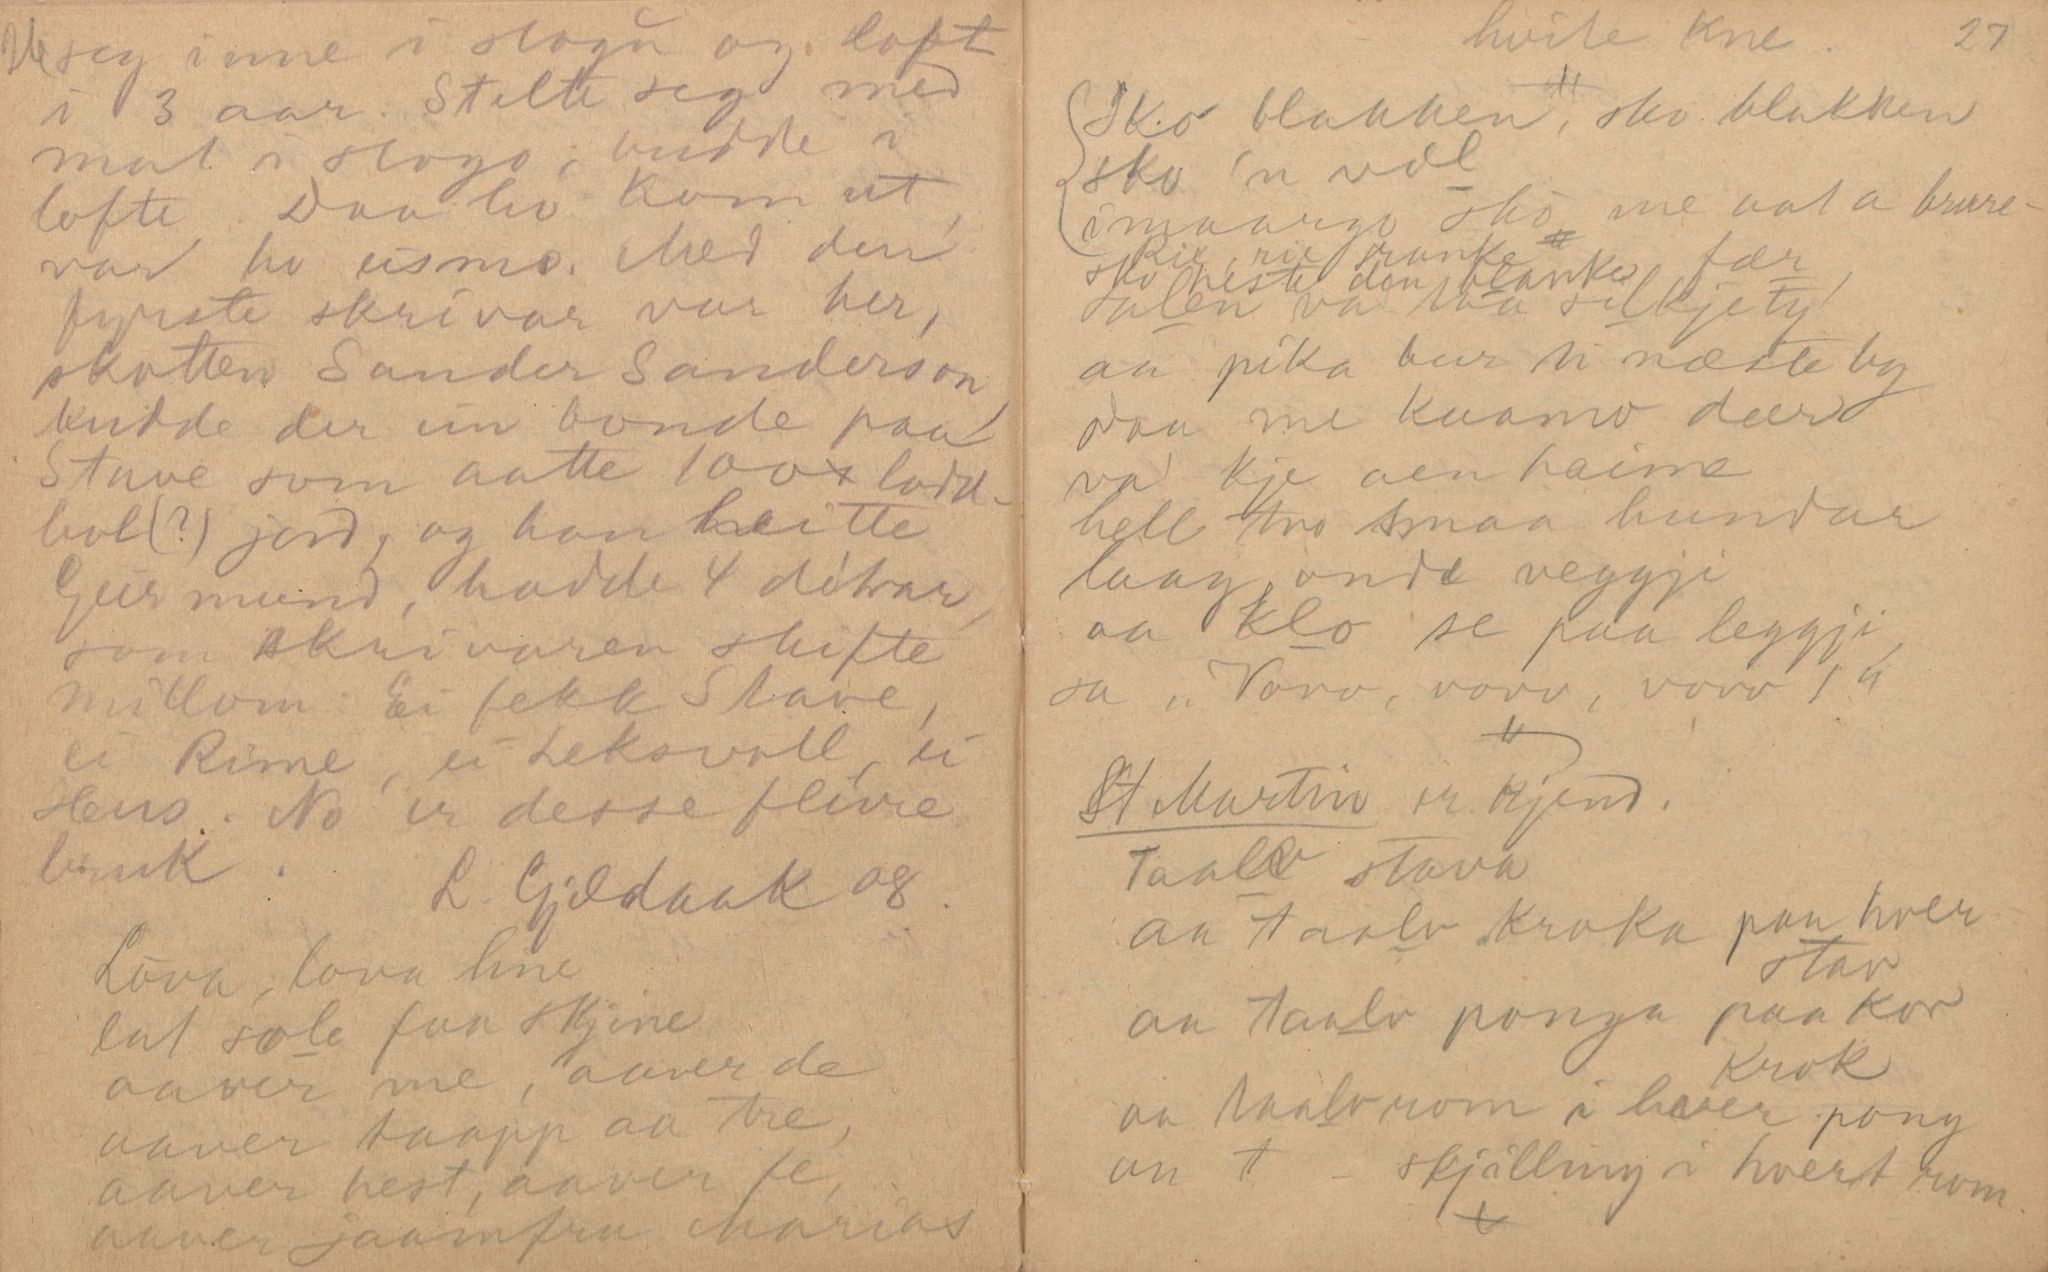 seg inne i stogu og loft
i 3 aar. Stelte seg med
mat i stogo, budde i
lofte. Daa ho kom ut,
var ho eismo. Med den
fyrste skrivar var her,
skotten Sander Sanderson,
budde der ein bonde paa
Stave som aatte 100 ladd-
bol(?) jord, og han heitte
Geirmund, hadde 4 døtrar,
som skrivaren skifte
millom: Ei fekk Stave,
ei Rime, ei Leksvoll, ei
Hus. No er desse fleire
bruk.
L. Gjeldaak 08.
Lova, lova line
lat sole faa skjine
aaver me, aaver de
aaver taapp aa tre,
aaver hest, aaver fe,
aaver jaamfru Marias
hvite kne. 27
Sko blakken, sko blakken
sko 'n vel
imaargo sko me aat a brure-
færs
Rie, rie ranke
sko hesten den blanke
salen va taa silkjety
aa pika bur ti næste by
Daa me kuamo dær
va kje aen haime
hell tvo smaa hundar
laag onde veggji
aa klo se paa leggji,
sa „Vovv, vovv, vovv!"
St Martin er kjend.
Taalv stava
aa taalv kroka paa hver
stav
aa taalv ponga paa kor
krok
aa taalv rom i hver pong
aa t – skjilling i hvert rom